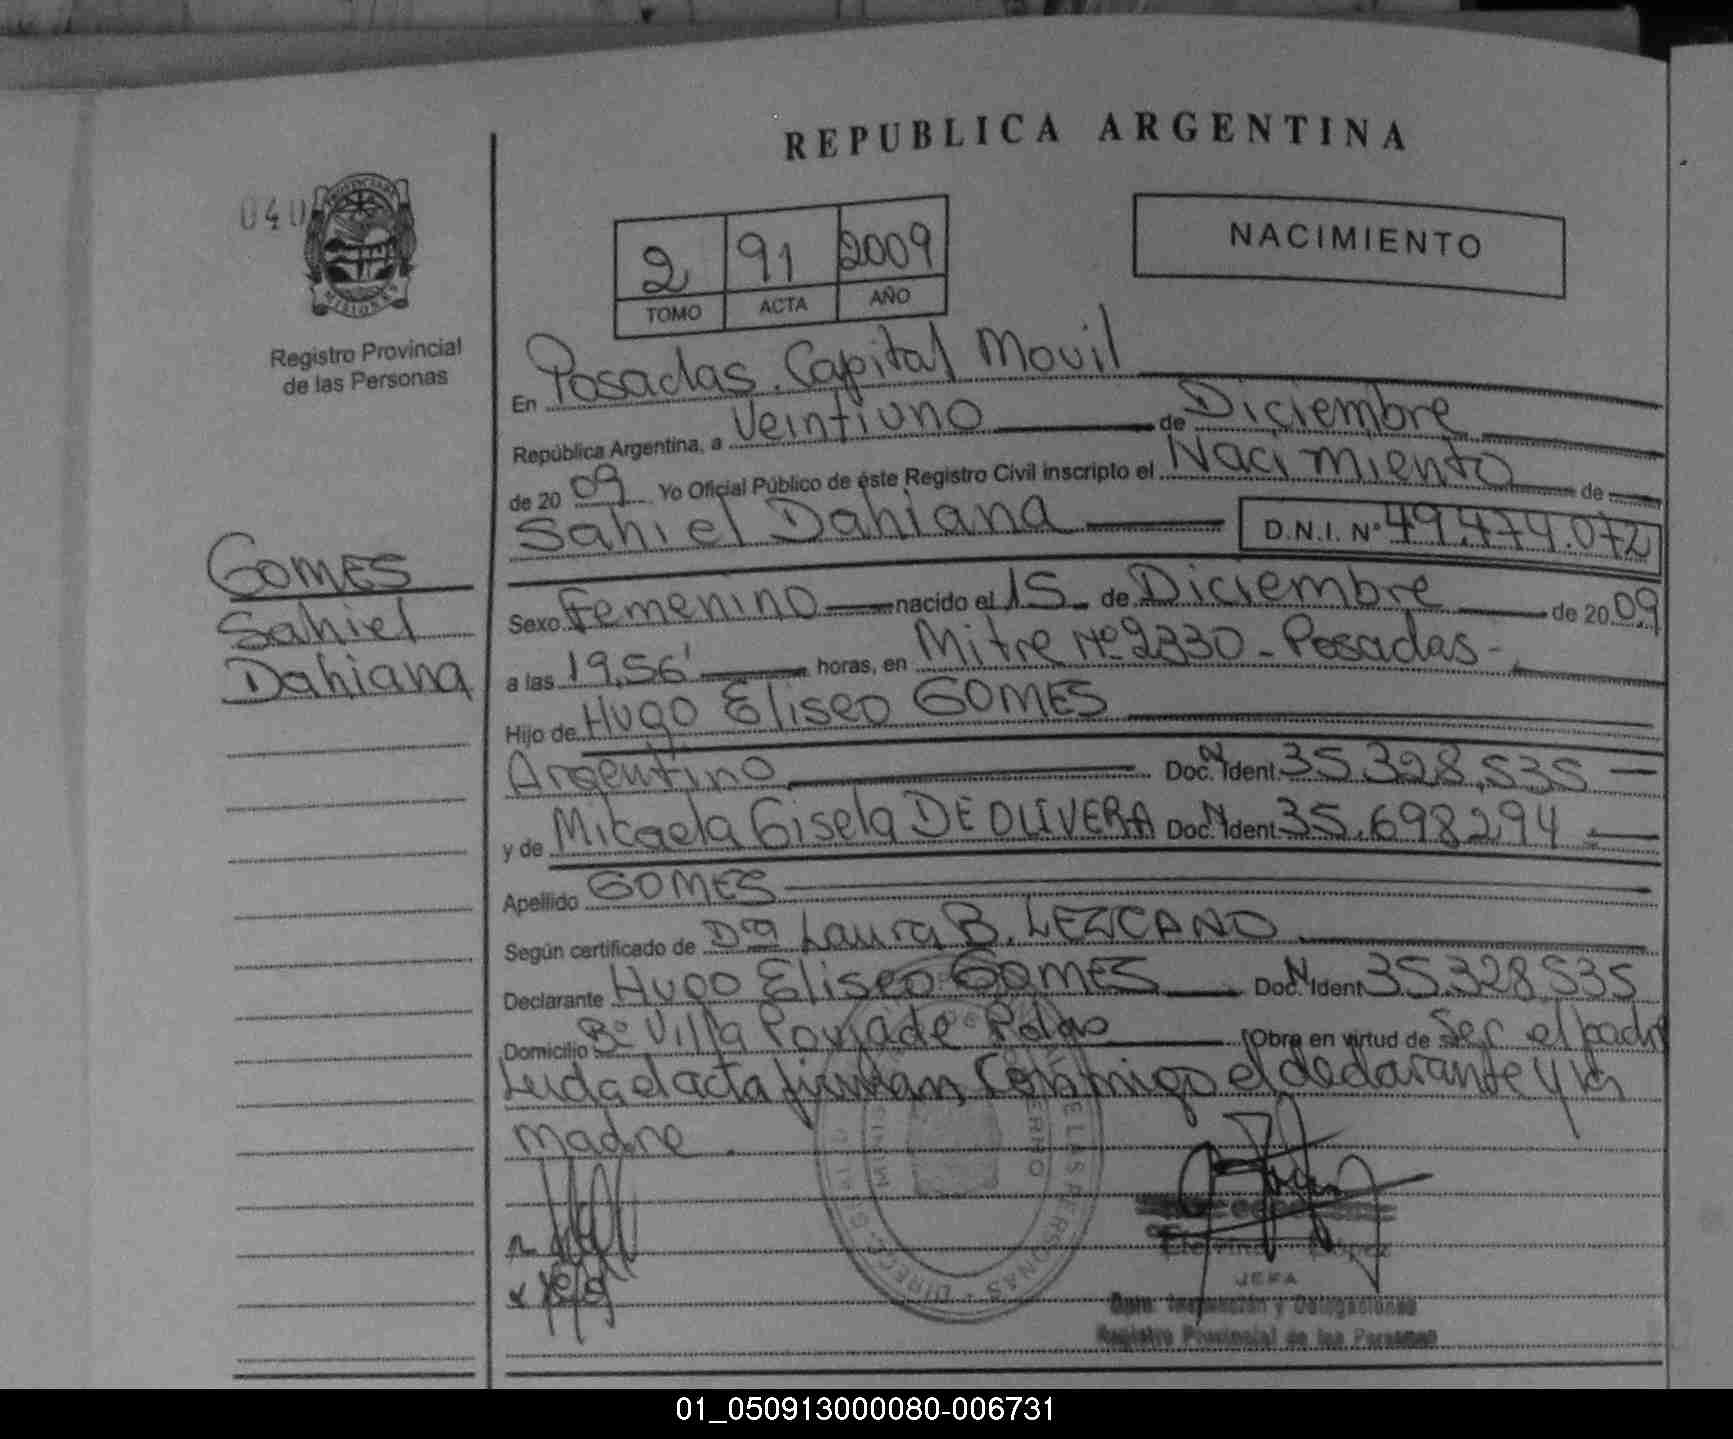 REPUBLICA ARGENTINA
040
MISIONES
Registro Provincial
de las Personas
2 91 2009
TOMO ACTA AÑO
NACIMIENTO
En Posadas. Capital Movil
República Argentina, a Veintiuno de Diciembre
de 2009 Yo Oficial Público de éste Registro Civil inscripto el Nacimiento de
Sahiel Dahiana D.N.I. Nº 49.474.072
GOMES
Sahiel
Dahiana
Sexo Femenino nacido el 15 de Diciembre de 2009
a las 19,56' horas, en Mitre Nº 2330 - Posadas -
Hijo de Hugo Eliseo GOMES
Argentino Doc. N Ident. 35.328.535
y de Mikaela Gisela DE OLIVERA Doc. N Ident. 35.698.294
Apellido GOMES
Según certificado de Dra Laura B. LEZCANO
Declarante Hugo Eliseo GOMES Doc. N Ident 35.328.535
Domicilio Bº Villa Poujade Pdas Obra en virtud de Ser el padre
Leida el acta firman Conmigo el declarante y la
madre.
JEFA
Dpto. Inspección y Delegaciones
Registro Provincial de las Personas
01_050913000080-006731